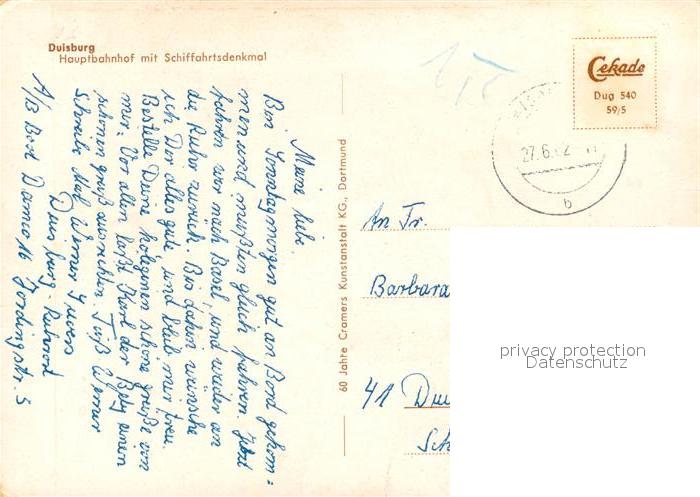 Duisburg
Hauptbahnhof mit Schiffahrtsdenkmal
Meine liebe
Bin Sonntagmorgen gut an Bord gekom=
men und mußten gleich fahren. Jetzt
fahren wir nach Basel, und wieder an
die Ruhr zurück. Bis dahin wünsche
ich Dir alles gute, und bleib mir treu.
Bestelle Deine Koleginen schöne grüße von
mir. Vor allen laßt Karl der Betty einen
schönen gruß ausrichten. Tüß Werner
Schreibe Mal Werner
Duisburg-Ruhrort
A/B Bord Damco 16 Hordingstr. 3
60 Jahre Cramers Kunstanstalt KG., Dortmund
Cekade
Dug 540
59/5
27.6.62
b
An Fr.
Barbara
41 Dui
Sch
privacy protection
Datenschutz